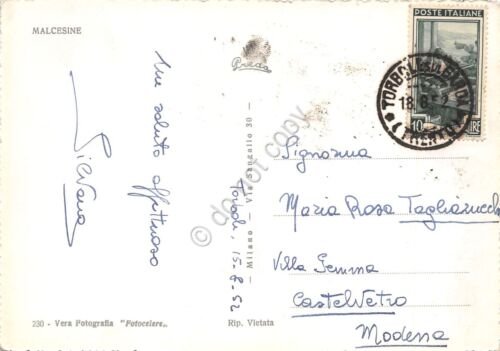 MALCESINE
Un saluto
affettuoso
Silvana
Torbole, 15-8-52
230 - Vera Fotografia "Fotocelere"
Preda
— Milano — Via Sangallo 30 —
Rip. Vietata
do not copy
POSTE ITALIANE
10 LIRE
TORBOLE
18.8.52
(TRENTO)
Signorina
Maria Rosa Tagliazucchi
Villa Gemma
Castelvetro
Modena